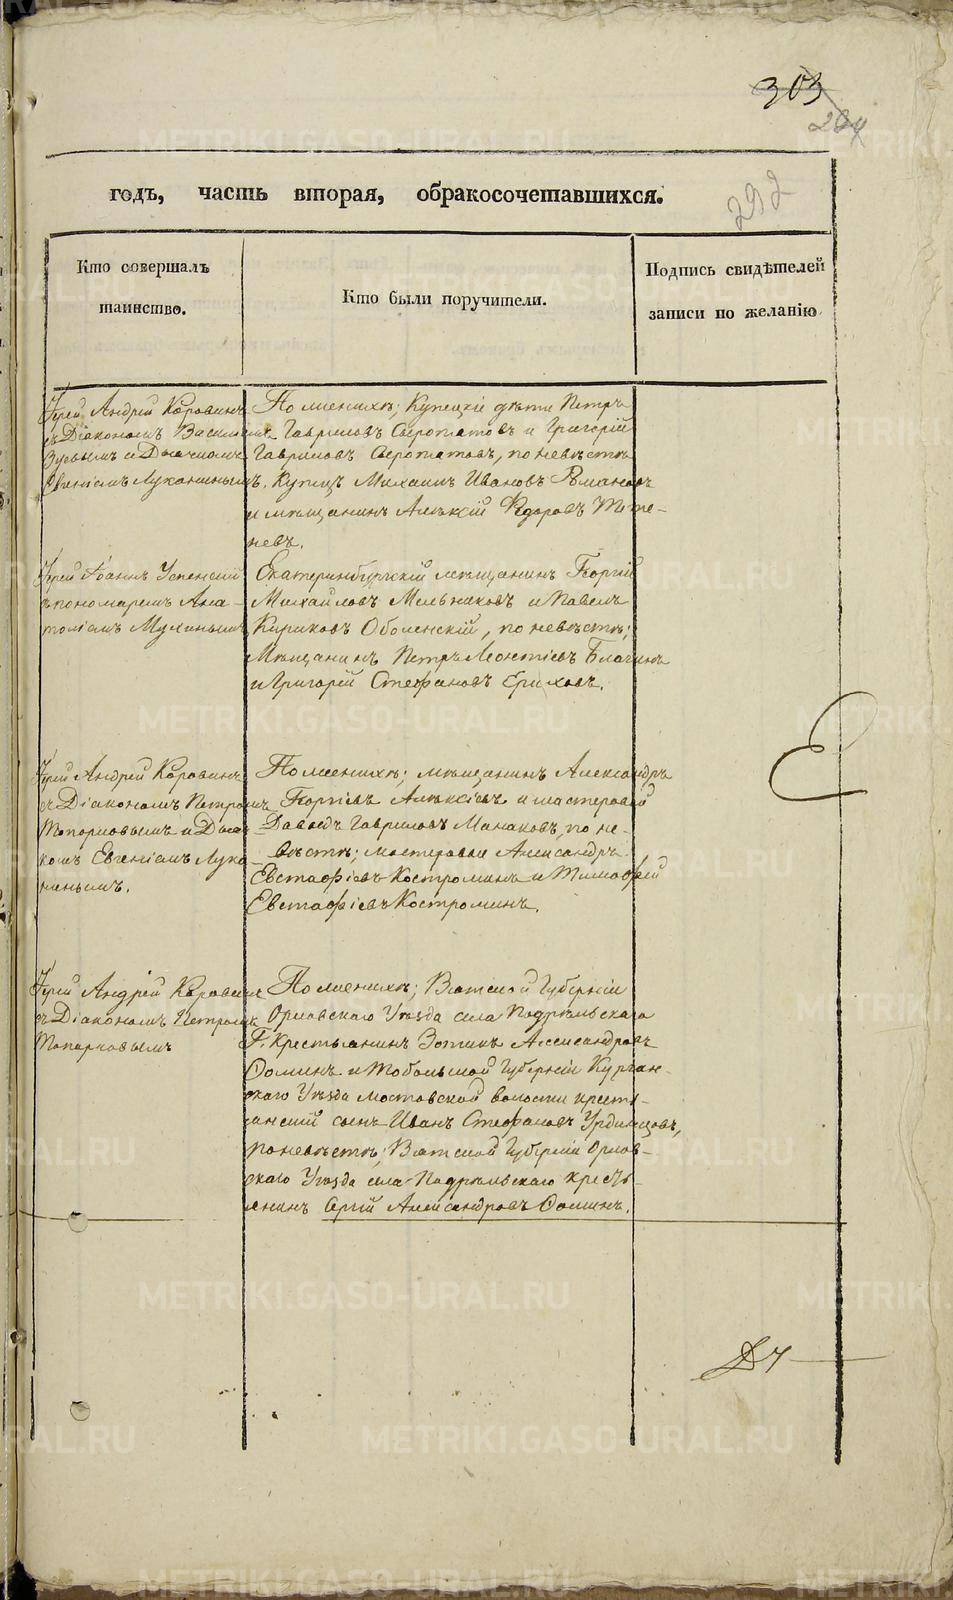 303
292
годъ, часть вторая, обракосочетавшихся.
Кто совершалъ
таинство.
Кто были поручители.
Подпись свидѣтелей
записи по желанію
Іерей Андрей Коровинъ
съ Діакономъ
и Дьячкомъ
Евгеніемъ Луканинымъ.
По женихѣ; Купецкіе дѣти Петръ
Гавриловъ и Григорій
Гавриловъ, по невѣстѣ
Купецъ Михаилъ Ивановъ
и мѣщанинъ Алексій Ѳедоровъ
невъ.
Іерей Іоаннъ Успенскій
съ пономаремъ Ана-
толіемъ
Екатеринбургскій мѣщанинъ Георгій
Михайловъ Мельниковъ и Павелъ
Кириковъ Оболенскій, по невѣстѣ;
Мѣщанинъ Петръ Леонтіевъ
и Григорій Стефановъ
Іерей Андрей Коровинъ
съ Діакономъ Петромъ
Топорковымъ и Дьяч-
комъ Евгеніемъ Лука-
нинымъ.
По женихѣ; мѣщанинъ Александръ
Георгіевъ Алексіевъ и мастеровой
Давидъ Гавриловъ Манаковъ, по не-
вѣстѣ; мастеровые Александръ
Евстафіевъ Костроминъ и Тимофей
Евстафіевъ Костроминъ.
Іерей Андрей Коровинъ
съ Діакономъ Петромъ
Топорковымъ
По женихѣ; Вятской Губерніи
Орловскаго Уѣзда села Подрѣльскаго
Крестьянинъ Зотикъ Александровъ
Ѳоминъ и Тобольской Губерніи Курган-
скаго Уѣзда Мостовской волости кресть-
янскій сынъ Иванъ Стефановъ
по невѣстѣ; Вятской Губерніи Орлов-
скаго Уѣзда села Подрѣльскаго кресть-
янинъ Сергій Александровъ Ѳоминъ.
METRIKI.GASO-URAL.RU